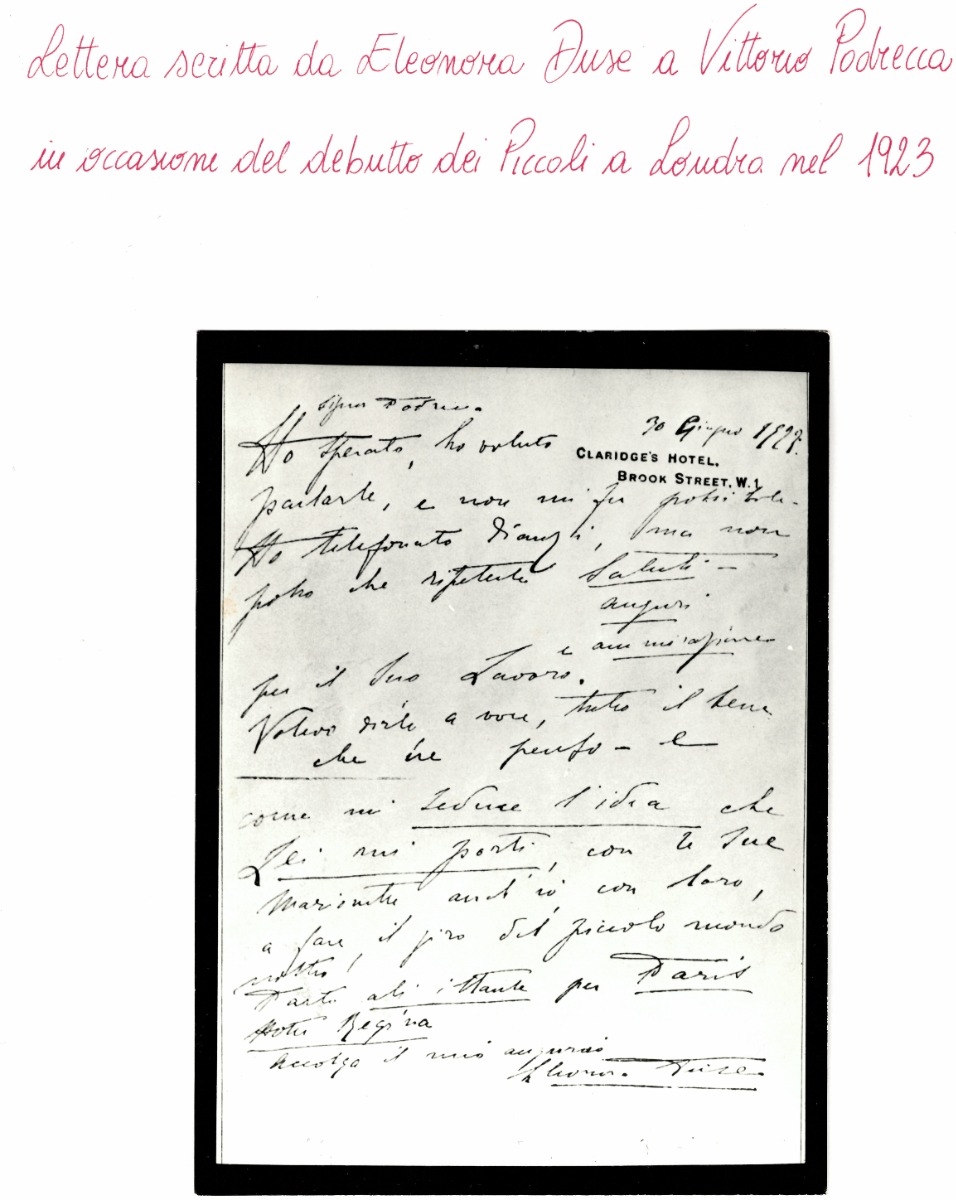 Lettera scritta da Eleonora Duse a Vittorio Podrecca
in occasione del debutto dei Piccoli a Londra nel 1923
Signor Podrecca
30 Giugno 1923.
CLARIDGE'S HOTEL,
BROOK STREET, W.1.
Ho sperato, ho voluto
parlarle, e non mi fu possibile -
Ho telefonato dianzi, ma non
posso che ripeterle saluti -
auguri
e ammirazione
per il Suo Lavoro.
Volevo dirle a voce, tutto il bene
che ne penso - e
come mi seduce l'idea che
Lei mi porti, con le Sue
Marionette anch'io, con loro,
a fare il giro del piccolo mondo
nostro!
Parto all'istante per Paris
Hotel Regina
Accolga il mio augurio
Eleonora Duse